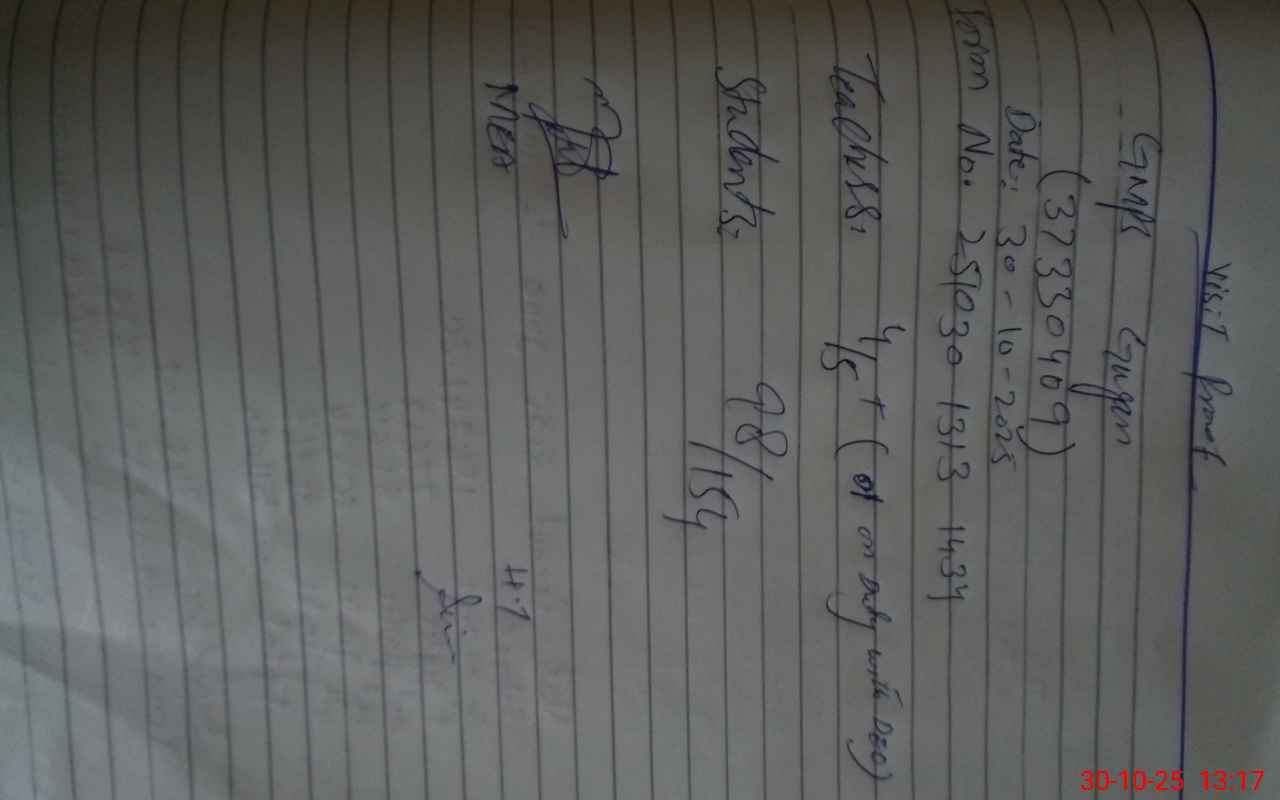 Visit Proof
GMPS Gugan
(37330409)
Date: 30-10-2025
Form No. 251030 1313 1434
Teachers: 4/5 + (01 on duty with DEO)
Students: 98/154
MEA
H.T
30-10-25 13:17